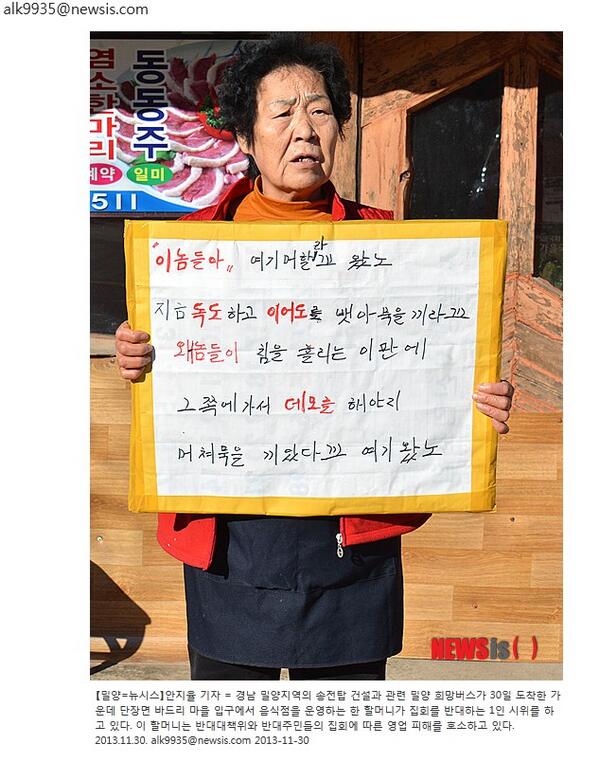 alk9935@newsis.com
염소한마리
동동주
예약 일미
511
"이놈들아" 여기머할라꼬 왔노
지금 독도하고 이어도를 뺏아묵을끼라꼬
왜놈들이 침을 흘리는 이판에
그쪽에가서 데모를 해야리
머쳐묵을 끼있다꼬 여기왔노
NEWSis( )
【밀양=뉴시스】안지율 기자 = 경남 밀양지역의 송전탑 건설과 관련 밀양 희망버스가 30일 도착한 가
운데 단장면 바드리 마을 입구에서 음식점을 운영하는 한 할머니가 집회를 반대하는 1인 시위를 하
고 있다. 이 할머니는 반대대책위와 반대주민들의 집회에 따른 영업 피해를 호소하고 있다.
2013.11.30. alk9935@newsis.com 2013-11-30